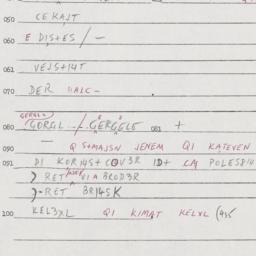 050 CEKAJT
060 E DIS+ES / —
061 VEJS+I4T
070 DER HALC -
GERGLO)
080 GORGL ./. GERGELE 081 +
090 — Q S+MAJSN JENEM QI KATEVEN
091 DI KORI4S+ COV3R ID+ CA POLESPI4
) RET VIA BROD3R
)-RET BRI45K
100 KEL3XL QI KIMAT KELXL (435